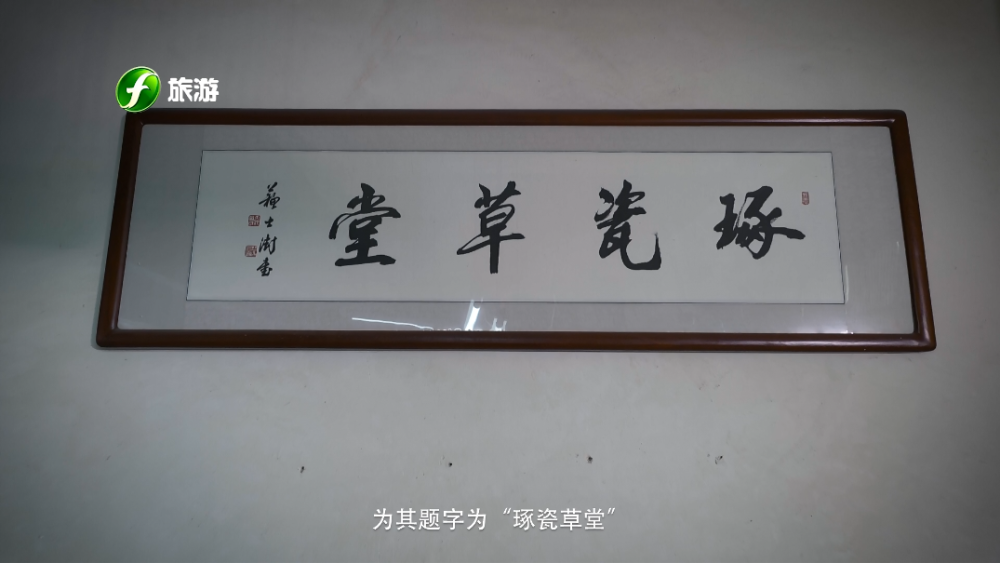 旅游
琢瓷草堂
苏士澍书
为其题字为“琢瓷草堂”